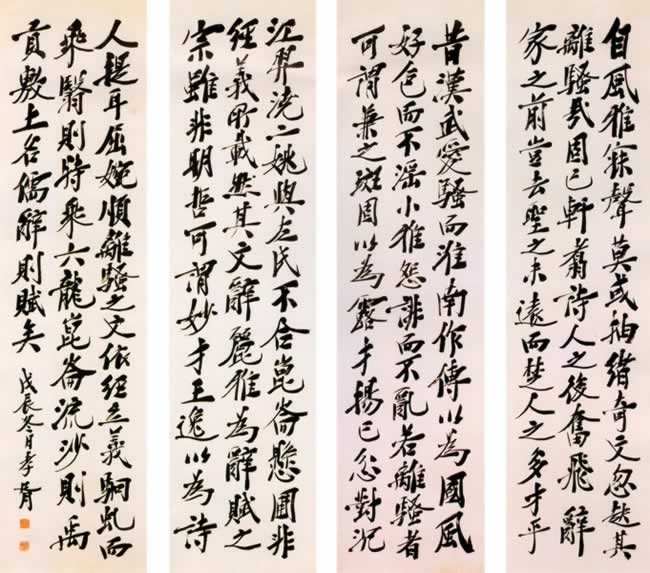 自風雅寢聲莫或抽緒奇文忽起其
離騷哉固已軒翥詩人之後奮飛辭
家之前豈去聖之未遠而楚人之多才乎
昔漢武愛騷而淮南作傳以為國風
好色而不淫小雅怨誹而不亂若離騷者
可謂兼之班固以為露才揚己忿對沉
江羿澆二姚與左氏不合崑崙懸圃非
經義所載然其文辭麗雅為辭賦之
宗雖非明哲可謂妙才王逸以為詩
人提耳屈婉順離騷之文依經立義駟虬而
乘鷖則時乘六龍崑崙流沙則禹
貢敷土名儒辭則賦矣 戊辰冬月孝胥